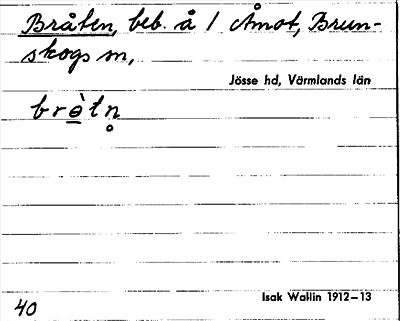 Bråten, beb. å 1 Åmot, Brun-
skogs sn,
Jösse hd, Värmlands län
brə̲̀tn̥
Isak Wallin 1912–13
40